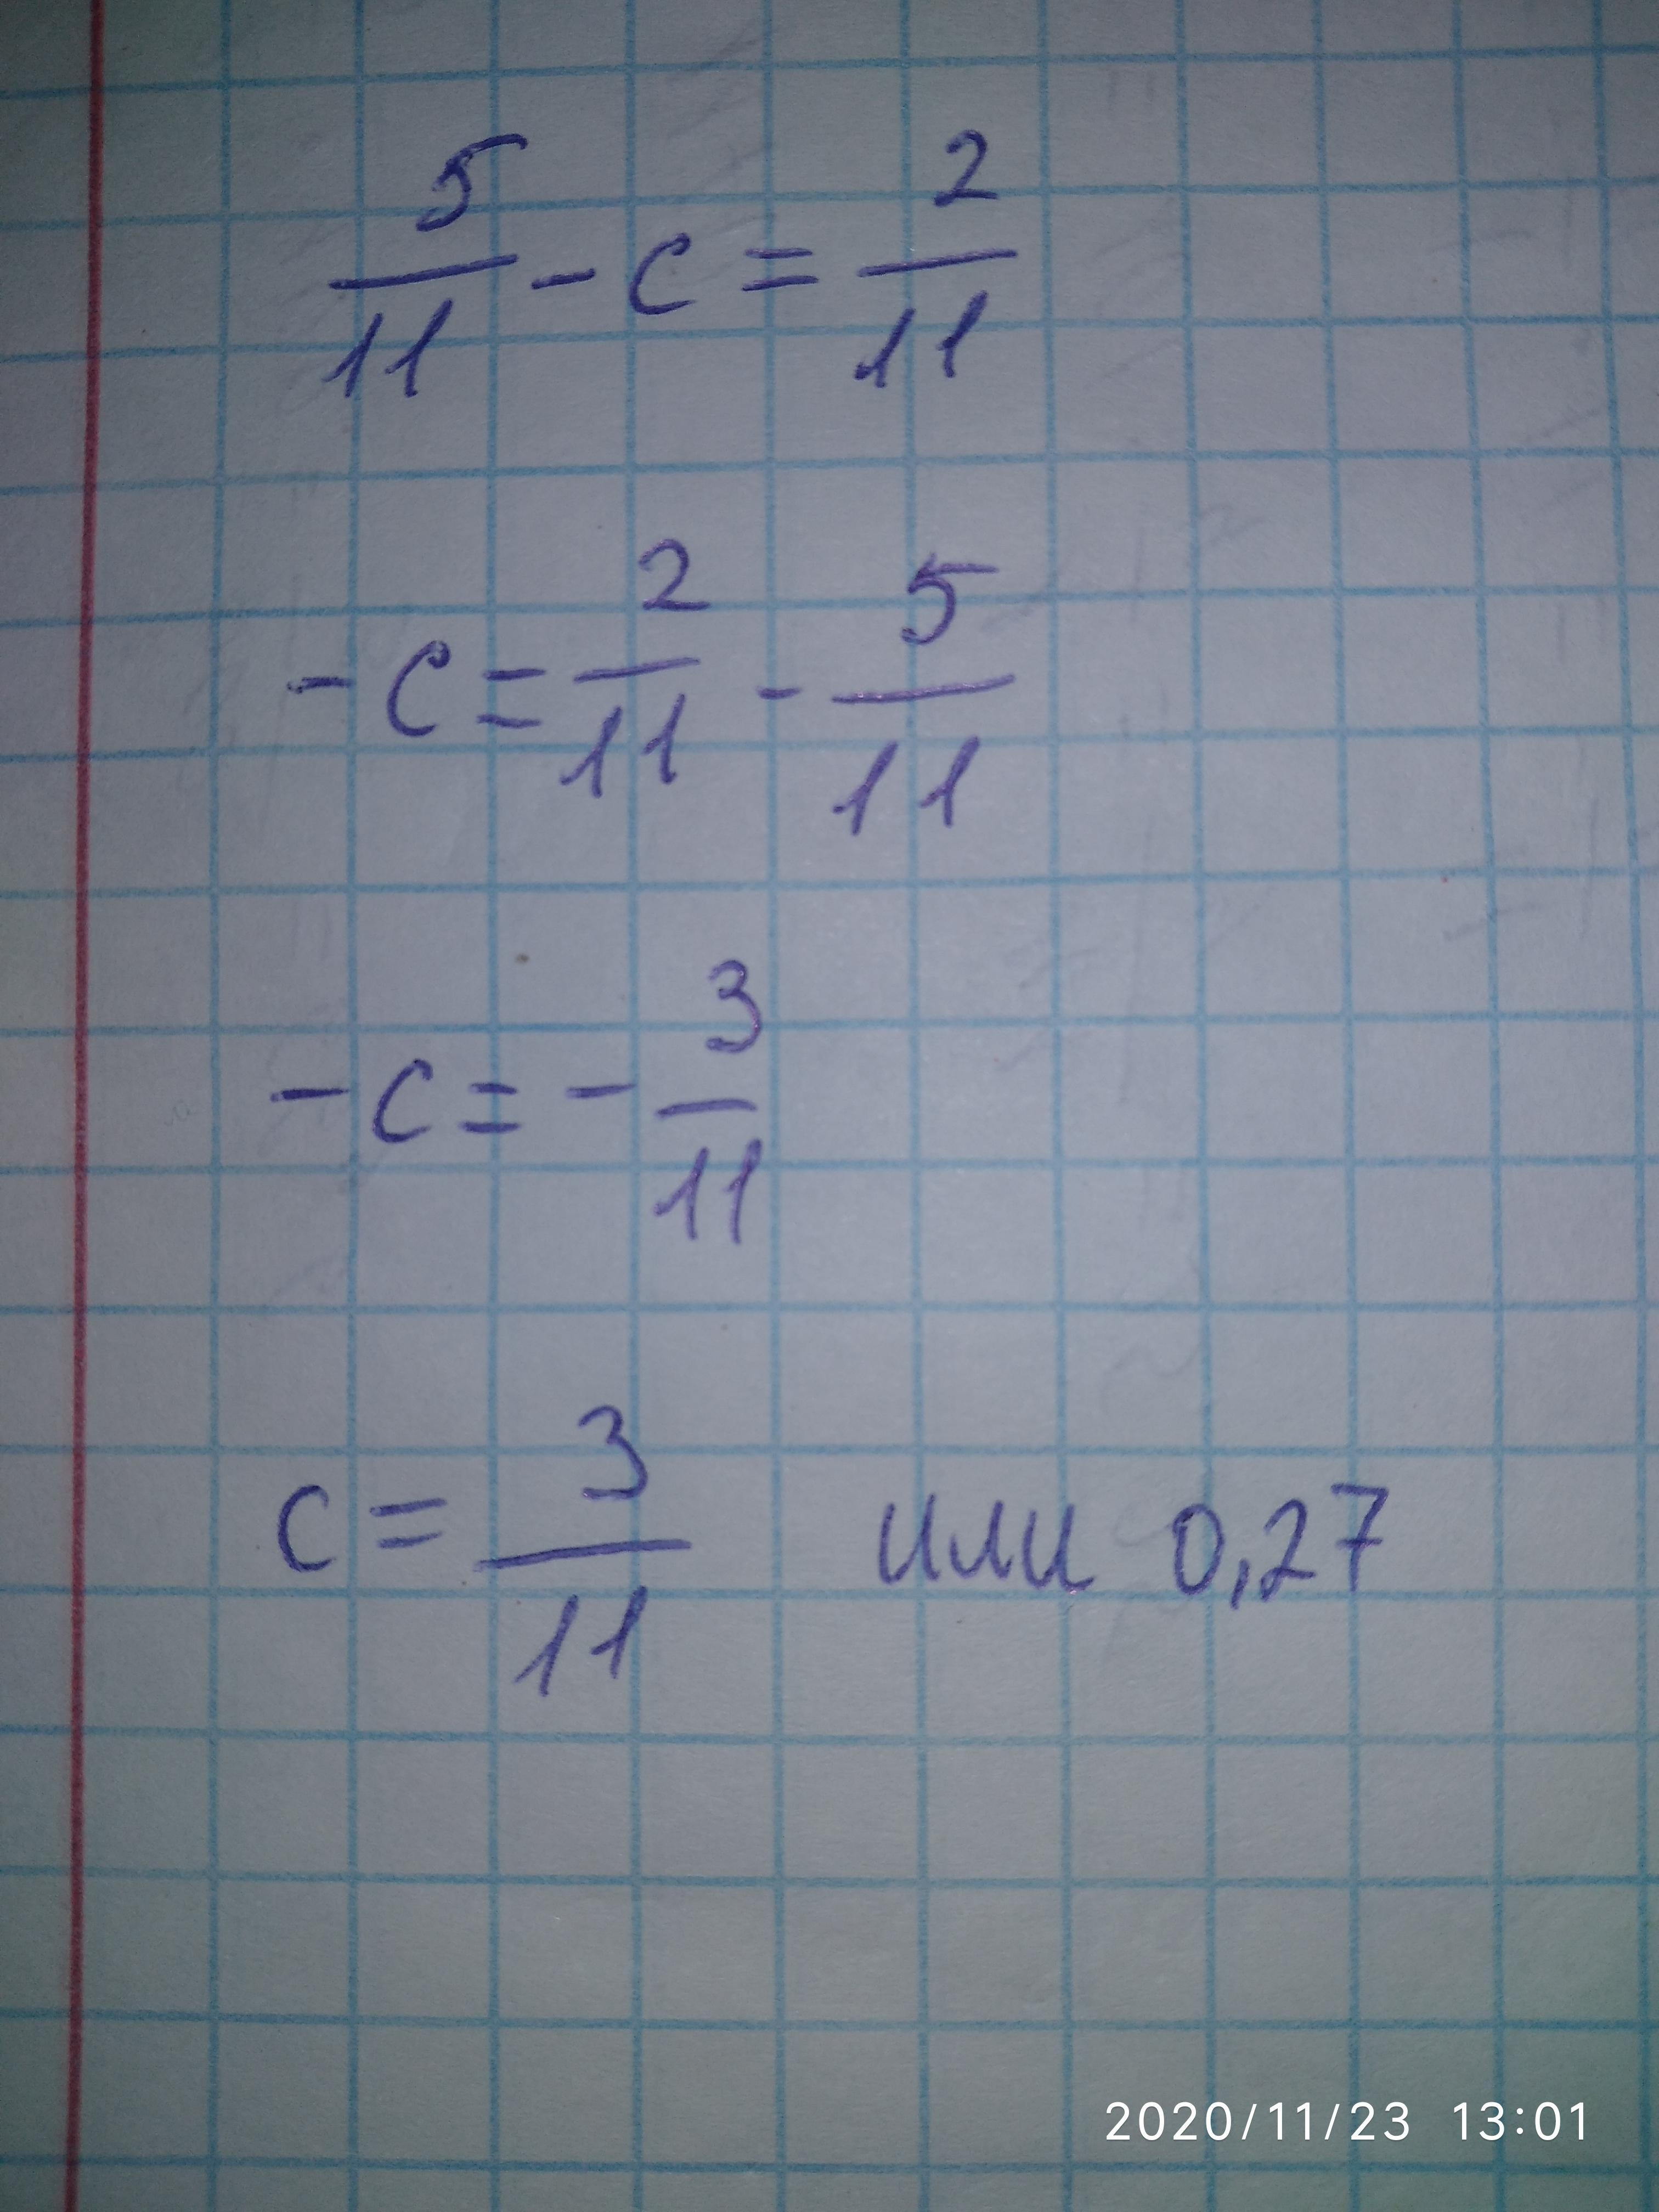 5/11 - c = 2/11
-c = 2/11 - 5/11
-c = - 3/11
c = 3/11 или 0,27
2020/11/23 13:01